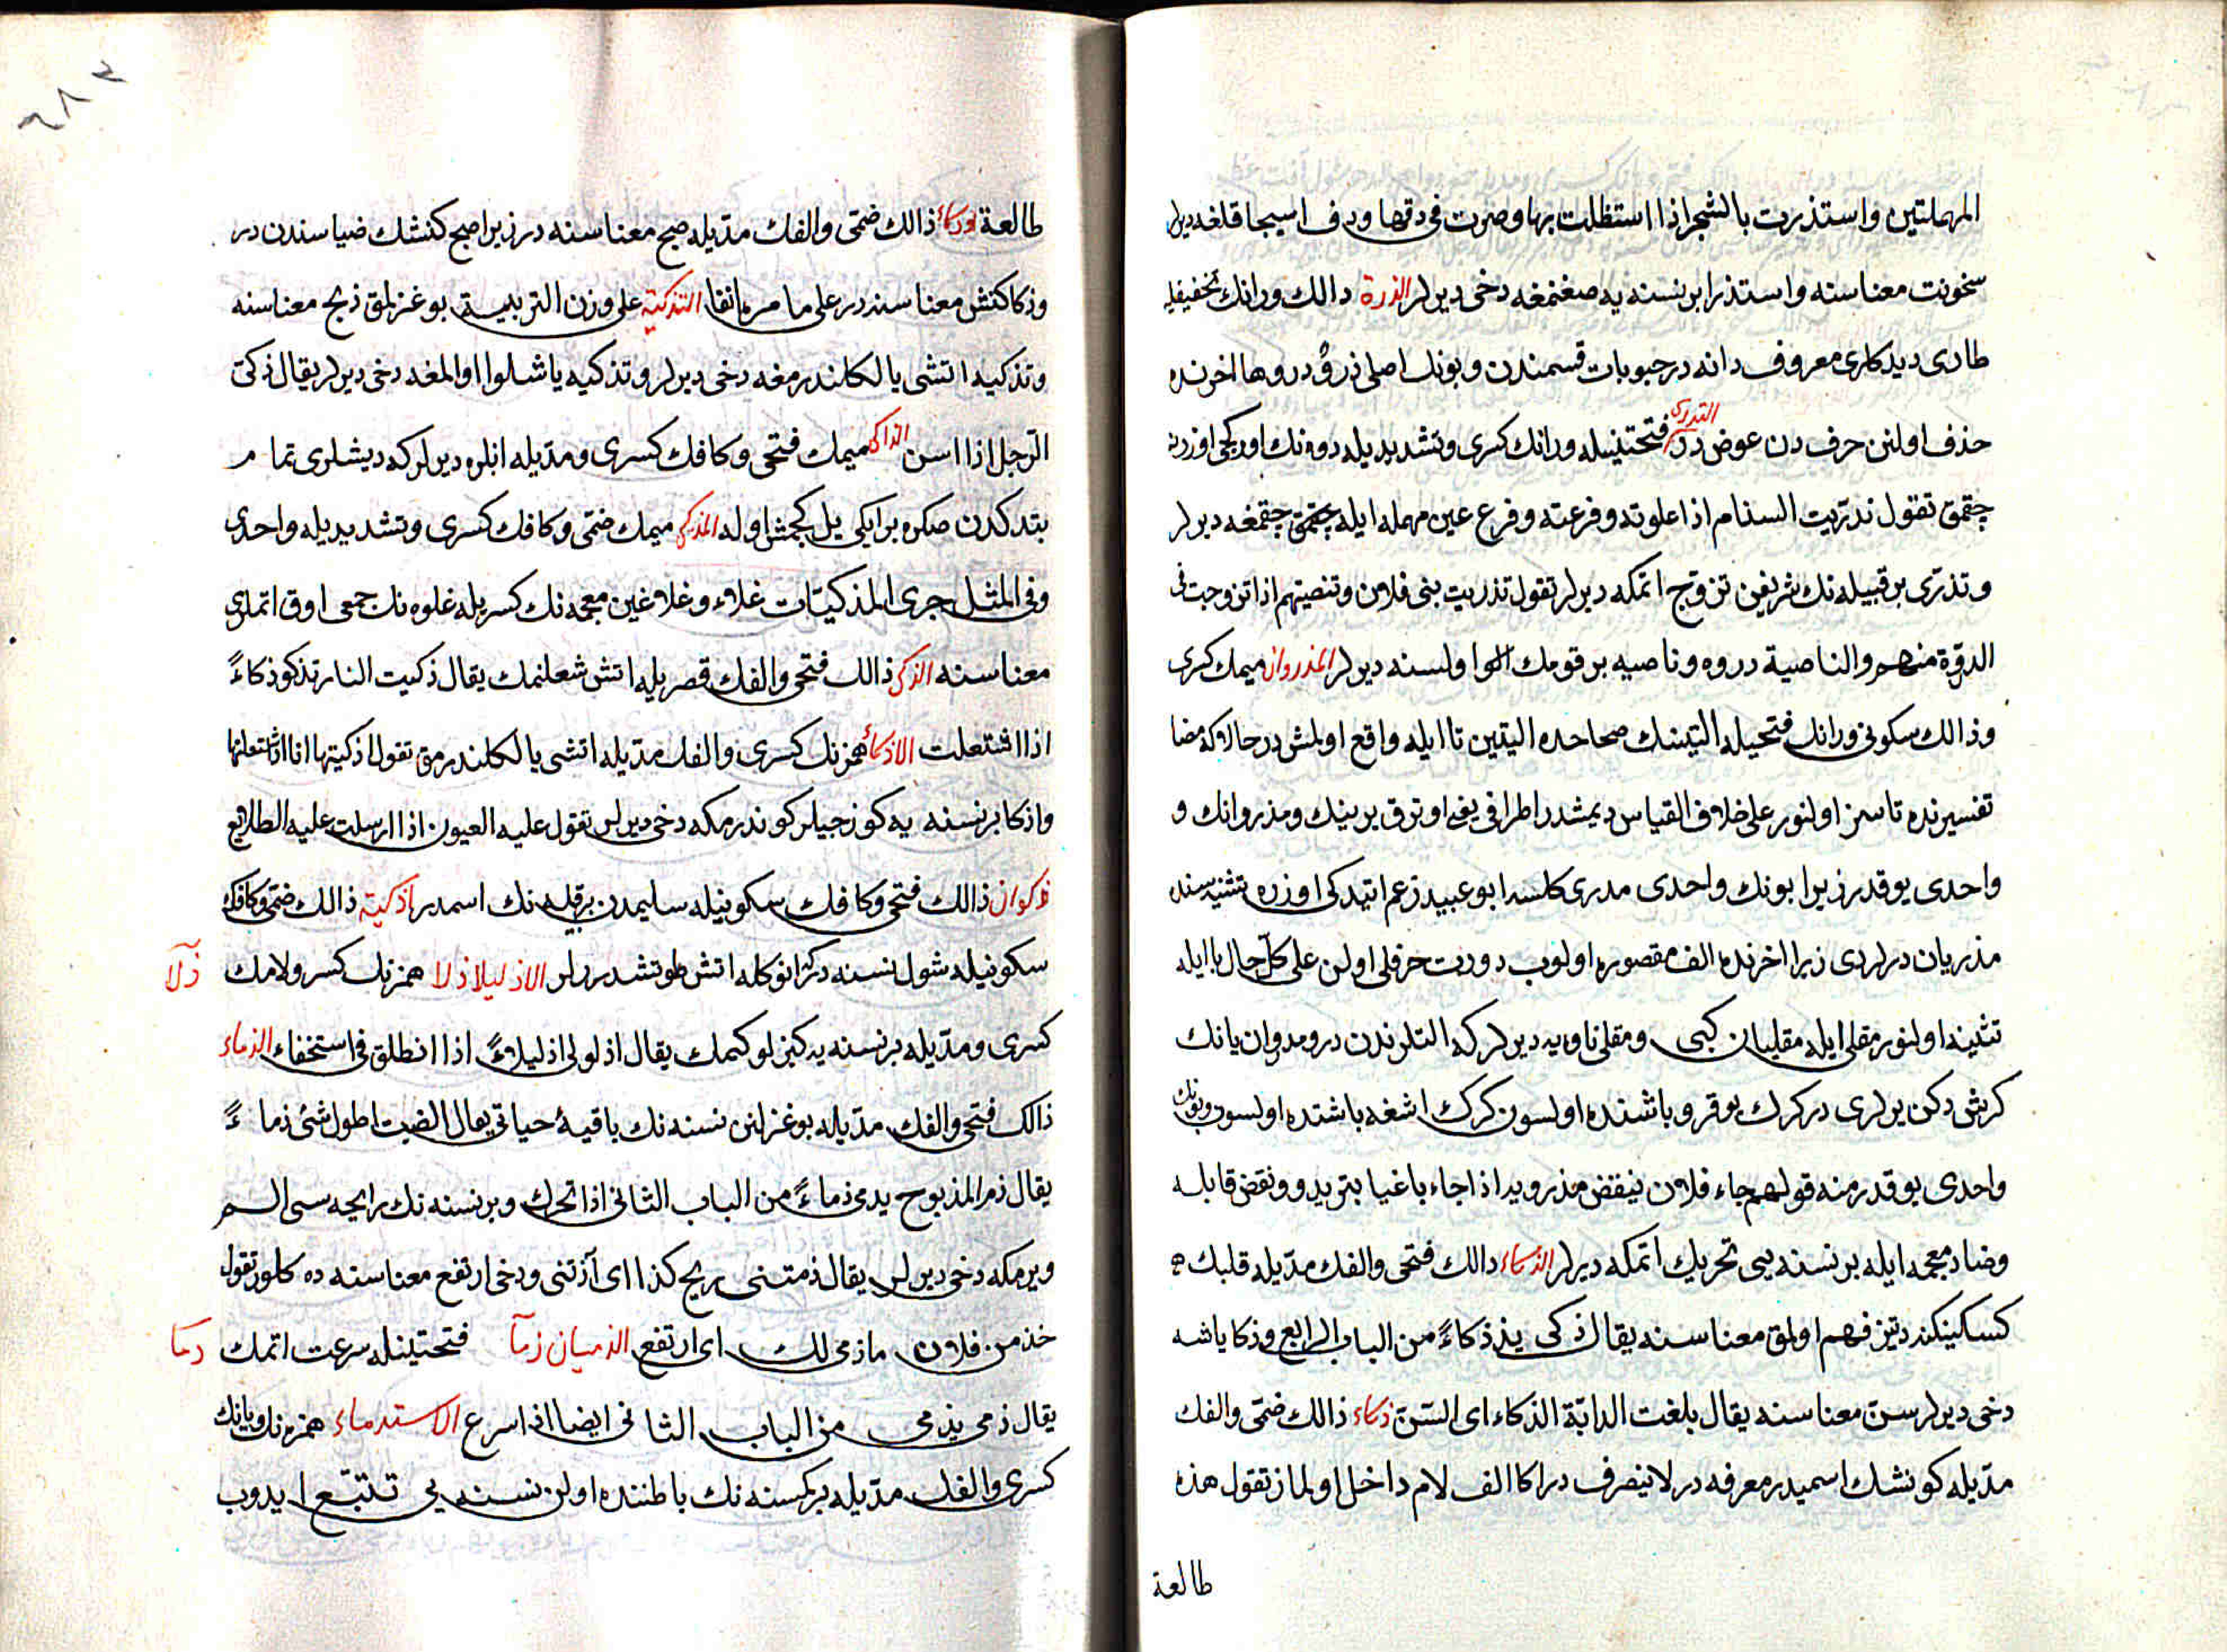 المهملتين واستذريت بالشجر اذا استظللت بها وصرت فى دفئها ودفء اسيجا قلغه ديرلر
سخونت معناسنه واستذرا بر نسنه يه صغنمغه دخى ديرلر الذرة ذالك ورانك تخفيفيله
طارى ديدكلرى معروف دانه در حبوبات قسمندن وبونك اصلى ذرو در وها اخرنده
حذف اولنن حرف دن عوض در التذرى فتحتينيله ورانك كسرى وتشديديله دوه نك اوركجى اوزرنه
چقمق تقول تذريت السنام اذا علوته وفرعته وفرع عين مهمله ايله چقمق چقمغه ديرلر
وتذرى بر قبيله نك شريفن تزوج اتمكه ديرلر تقول تذريت بنى فلان وتنصيتهم اذا تزوجت فى
الذروة منهم والناصية ذروه وناصيه بر قومك الوا ولسنه ديرلر المذروان ميمك كسرى
وذالك سكونى ورانك فتحيله اليتينك صحاحده اليتين تا ايله واقع اولمش در حالا كه مضا
تفسيرنده تاسز اولنور على خلاف القياس ديمشدر اطرافى يعنى اوترق يرينك ومذروانك و
واحدى يوقدر زيرا بونك واحدى مذرى كلسه ابو عبيد زعم اتيدكى اوزره تثنيه سنده
مذريان ديرلردى زيرا اخرنده الف مقصوره اولوب دورت حرفلى اولن على كل حال يا ايله
تثنيه اولنور مقلى ايله مقليان كبى ومقلى تاوه يه ديرلر كه التلرندن در ومذروان يانك
كريش دكن يرلرى در كرك يوقرو باشنده اولسون كرك اشغه باشنده اولسون وبونك
واحدى يوقدر منه قولهم جاء فلان ينفض مذرويه اذا جاء باغيا يتهدد ونفض قا بله
وضاد معجمه ايله بر نسنه يى تحريك اتمكه ديرلر الذكاء ذالك فتحى والفك مديله قلبك
كسكينلكنه وتيز فهم اولمق معناسنه يقال ذكى يذكى ذكاءً من الباب الرابع وذكا ياشه
دخى ديرلر سن معناسنه يقال بلغت الدابة الذكاء اى السن ذكاء ذالك ضمى والفك
مديله كونشك اسميدر معرفه در لا ينصرف در اكا الف لام داخل اولماز تقول هذه
طالعة
طالعة وذكاء ذالك ضمى والفك مديله صبح معناسنه در زيرا صبح كنشك ضياسندن در
وذكا كنش معناسنه در على ما مر انفا التذكية على وزن التربية بوغزلمق ذبح معناسنه
وتذكيه اتشى يالكلندرمغه دخى ديرلر وتذكيه ياشلو اوالمغه دخى ديرلر يقال ذكى
الرجل اذا اسن المذاكى ميمك فتحى وكافك كسرى ومديله اتلره ديرلر كه ديشلرى تمام
بتدكدن صكره بر ايكى يل كچمش اوله المذكى ميمك ضمى وكافك كسرى وتشديديله واحدى
وفى المثل جرى المذكيات غلاء وغلاء غين معجمه نك كسريله غلوه نك جمعى اوق اتملرى
معناسنه الذكى ذالك فتحى والفك قصريله اتش شعلنمك يقال ذكيت النار تذكو ذكاءً
اذا اشتعلت الاذكاء همزه نك كسرى والفك مديله اتشى يالكلندرمق تقول اذكيتها انا اذا اشتعلتها
واذكا بر نسنه يه كوزجيلر كوندرمكه دخى ديرلر تقول عليه العيون اذا ارسلت عليه الطلايع
ذكوان ذالك فتحى وكافك سكونيله سليمدن بر قبيله نك اسمدر اذكية ذالك ضمى وكافك
سكونيله شول نسنه در كه انوكله اتش طوتشدررلر الاذليلاء ذلا همزه نك كسر ولامك
ذلا
كسرى ومديله بر نسنه يه كيزلو كتمك يقال اذلولى اذليلاءً اذا انطلق فى استخفاء الذماء
ذالك فتحى والفك مديله بوغزلنن نسنه نك باقيۀ حياتى يقال الضب اطول شئ ذماءً
يقال ذمى المذبوح يذمى ذماءً من الباب الثانى اذا تحرك وبر نسنه نك رايحه سى الم
ويرمكه دخى ديرلر يقال ذمتنى ريح كذا اى آذتنى ودخى ارتفع معناسنه ده كلور تقول
خذ من فلان ماذمى لك اى ارتفع الذميان ذمآ فتحتينله سرعت اتمك
ذما
يقال ذمى يذمى من الباب الثانى ايضا اذا اسرع الاستذماء همزه نك ويانك
كسرى والفك مديله بر كمسنه نك باطننده اولن نسنه يى تتبع ايدوب